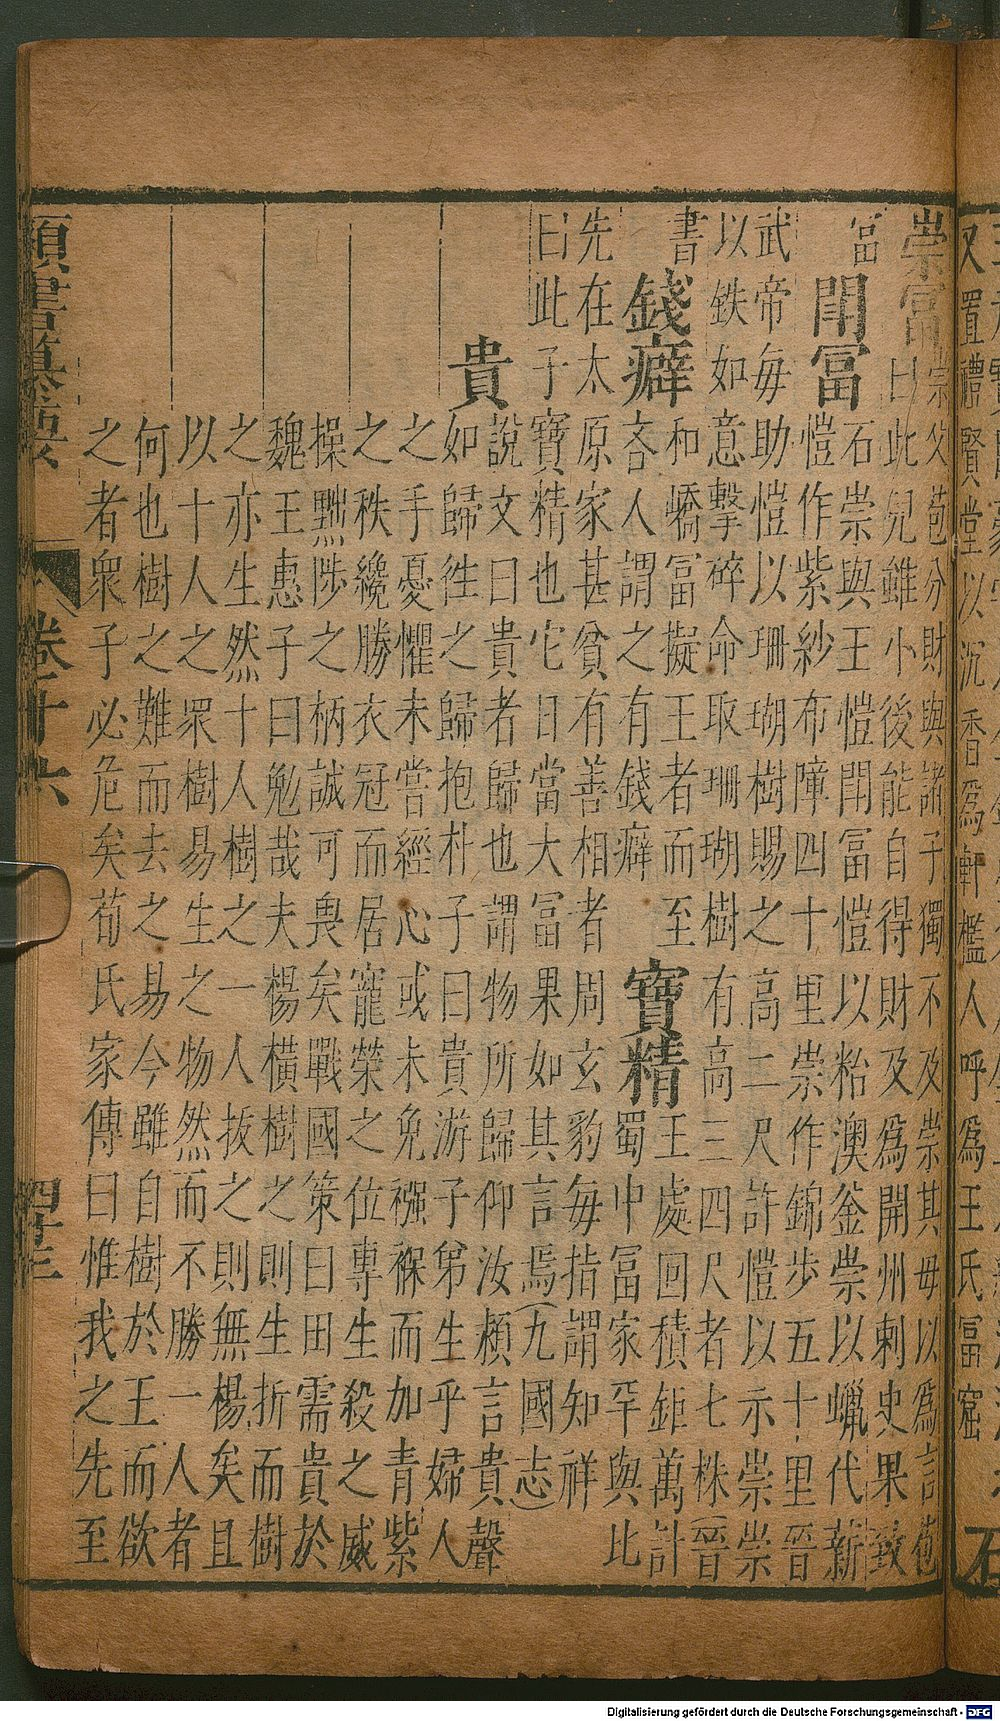 奴置醴賢堂以沉香爲軒檻人呼爲王氏冨窟
石
崇冨
崇父苞分財與諸子獨不及崇其母以爲言苞
曰此兒雖小後能自得財及爲開州刺史果致
冨
鬥冨
石崇與王愷鬥冨愷以粘澳釜崇以蠟代薪
愷作紫紗布障四十里崇作錦步五十里晉
武帝每助愷以珊瑚樹賜之高二尺許愷以示崇崇
以鉄如意擊碎命取珊瑚樹有高三四尺者七株(晉
書
錢癖
和嶠冨擬王者而至
吝人謂之有錢癖
寶精
王處回積鉅萬計
蜀中冨家罕與比
先在太原家甚貧有善相者周玄豹每指謂知祥
曰此子寶精也它日當大冨果如其言焉(九國志)
貴
說文曰貴者歸也謂物所歸仰汝頴言貴聲
如歸徃之歸抱朴子曰貴游子弟生乎婦人
之手憂懼未嘗經心或未免襁褓而加青紫
之秩纔勝衣冠而居寵榮之位專生殺之威
操黜陟之柄誠可畏矣戰國策曰田需貴於
魏王惠子曰勉哉夫楊橫樹之則生折而樹
之亦生然十人樹之一人拔之則無楊矣且
以十人之衆樹易生之物然而不勝一人者
何也樹之難而去之易今雖自樹於王而欲
之者衆子必危矣荀氏家傳曰惟我之先至
類書纂要 卷二十六 四十三
Digitalisierung gefördert durch die Deutsche Forschungsgemeinschaft - DFG